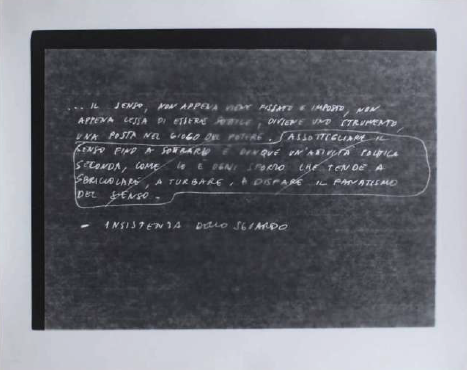 ... IL SENSO, NON APPENA VIENE FISSATO E IMPOSTO, NON
APPENA CESSA DI ESSERE SOTTILE, DIVIENE UNO STRUMENTO,
UNA POSTA NEL GIOCO DEL POTERE. ASSOTTIGLIARE IL
SENSO FINO A SOTTRARLO È DUNQUE UN'ATTIVITÀ POLITICA
SECONDA, COME LO È OGNI SFORZO CHE TENDE A
SBRICIOLARE, A TURBARE, A DISFARE IL FANATISMO
DEL SENSO.
- INSISTENZA DELLO SGUARDO